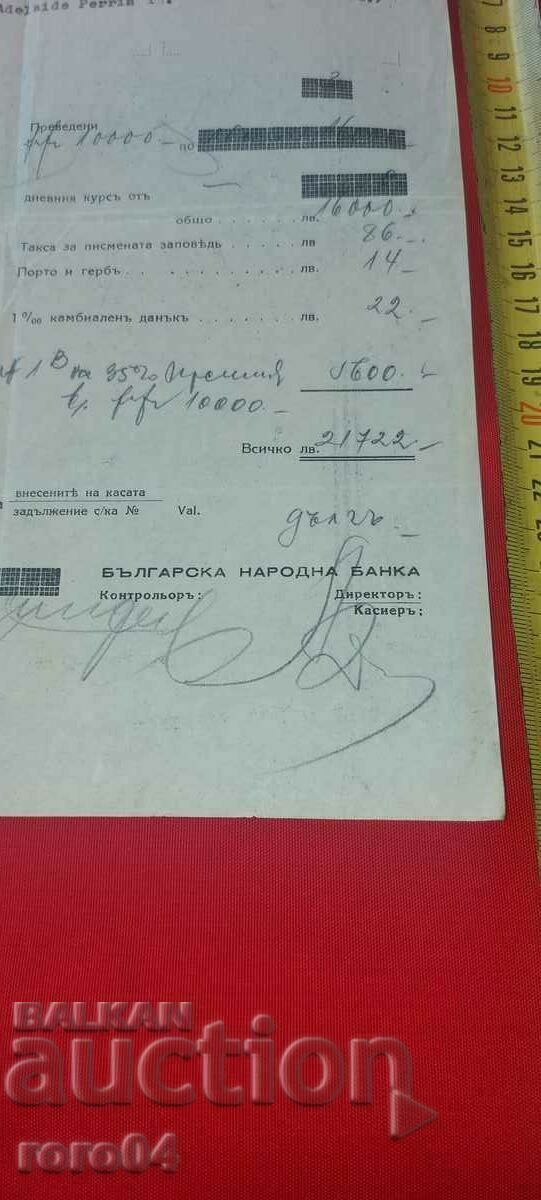 Adejaide Perrin
Преведени
frf 10000.— по 16
дневния курсъ отъ
общо . . . . . . . лв. 16000.-
Такса за писмената заповѣдь . . . . лв 86.-
Порто и гербъ . . . . . . . . . . лв. 14 —
1‰ камбиаленъ данъкъ . . . . . . . лв. 22.—
1 В на 35% премия 5600.-
в/ frf 10000.—
Всичко лв. 21722.—
внесенитѣ на касата
задължение с/ка № Val.
дългъ
БЪЛГАРСКА НАРОДНА БАНКА
Контрольоръ: Директоръ:
Касиеръ:
7 8 9 10 11 12 13 14 15 16 17 18 19 20 21 22
BALKAN
auction
roro04